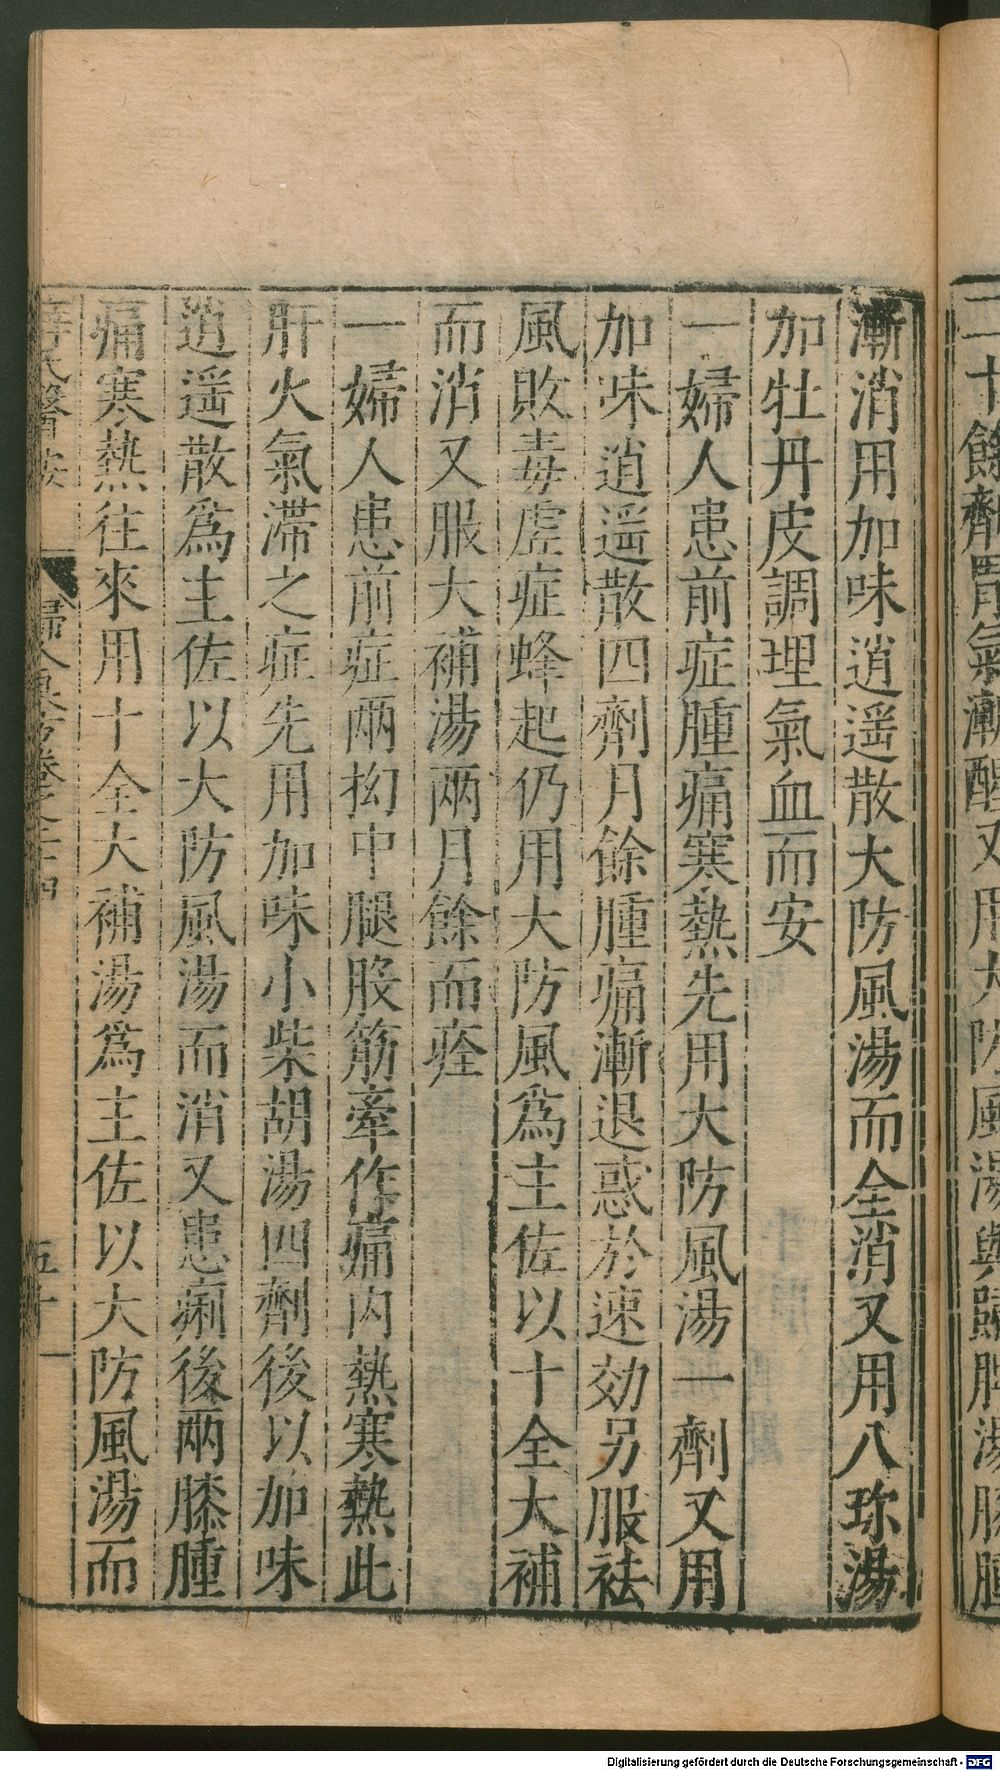 二十餘劑胃氣漸醒又用大防風湯與歸脾湯膝腫
漸消用加味逍遥散大防風湯而全消又用八珎湯
加牡丹皮調理氣血而安
一婦人患前症腫痛寒熱先用大防風湯一劑又用
加味逍遥散四劑月餘腫痛漸退惑於速効另服祛
風敗毒虚症蜂起仍用大防風爲主佐以十全大補
而消又服大補湯兩月餘而痊
一婦人患前症兩拗中腿股筋牽作痛内熱寒熱此
肝火氣滯之症先用加味小柴胡湯四劑後以加味
逍遥散爲主佐以大防風湯而消又患痢後兩膝腫
痛寒熱往來用十全大補湯爲主佐以大防風湯而
薛氏醫案 婦人良方卷之二十四 五十一
Digitalisierung gefördert durch die Deutsche Forschungsgemeinschaft - DFG